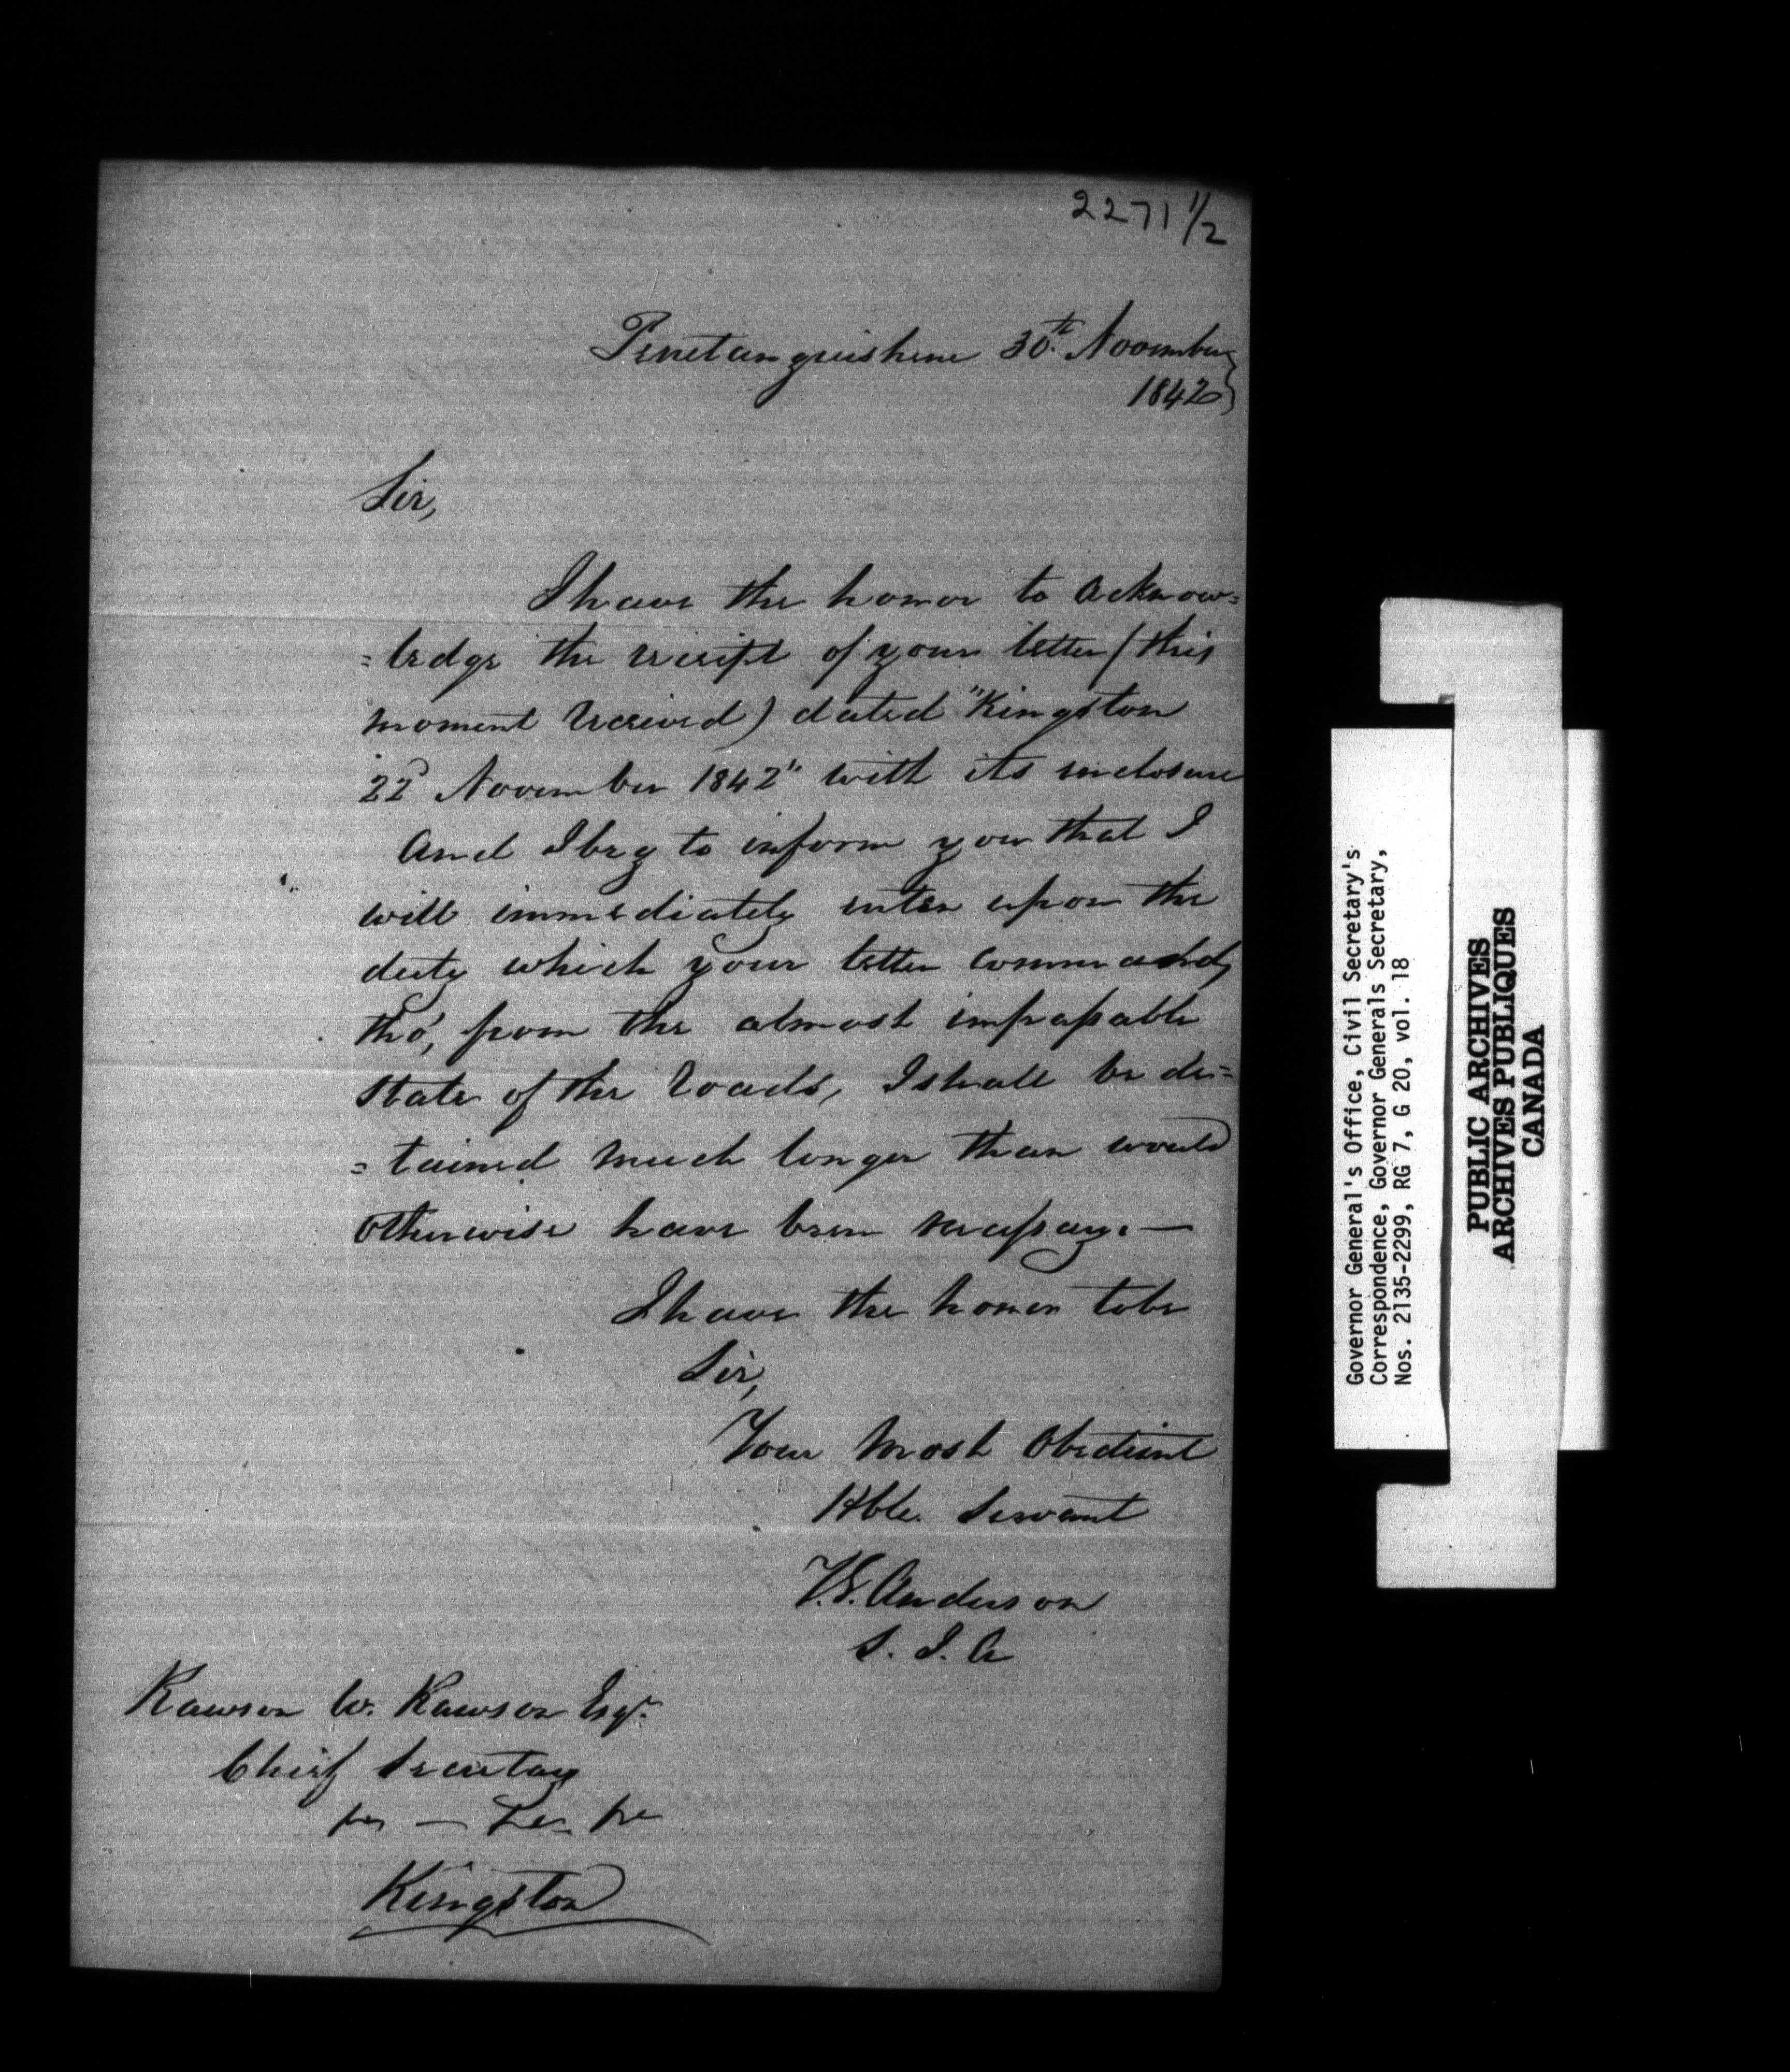 2271 1/2
Penetanguishene 30th November
1842
Sir,
I have the honor to acknow=
=ledge the receipt of your letter (this
moment received) dated "Kingston
22d November 1842" with its inclosure
And I beg to inform you that I
will immediately enter upon the
duty which your letter commands,
tho', from the almost impassable
state of the Roads, I shall be de=
=tained much longer than would
otherwise have been necessary.—
I have the honor to be
Sir,
Your Most Obedient
Hble. Servant
T.G. Anderson
S. I. A
Rawson W. Rawson Esqr.
Chief Secretary
Kingston
Governor General's Office, Civil Secretary's
Correspondence, Governor Generals Secretary,
Nos. 2135-2299, RG 7, G 20, vol. 18
PUBLIC ARCHIVES
ARCHIVES PUBLIQUES
CANADA